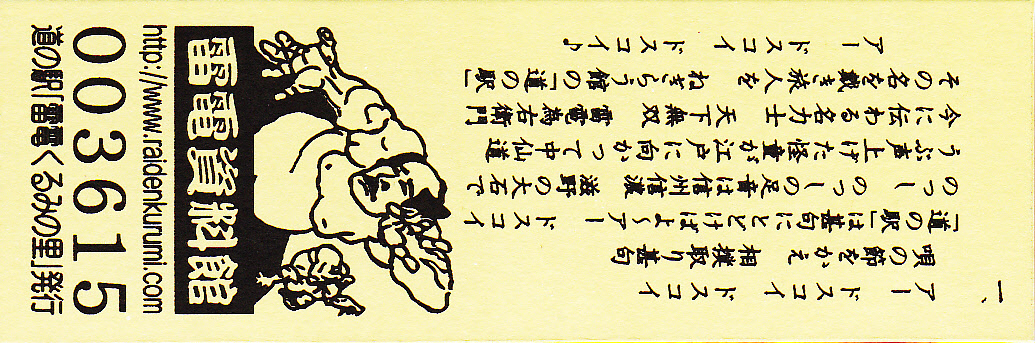 雷電資料館
http://www.raidenkurumi.com
003615
道の駅「雷電くるみの里」発行
一、
アー ドスコイ ドスコイ
唄の節をかえ 相撲取り甚句
「道の駅」は甚句にとどけばよ～アー ドスコイ
のっしー のっしーの足音は信州信濃 滋野の大石で
うぶ声上げた怪童が江戸に向かって中仙道
今に伝わる名力士 天下無双 雷電為右衛門
その名を戴き旅人を ねぎらう館の「道の駅」
アー ドスコイ ドスコイ♪